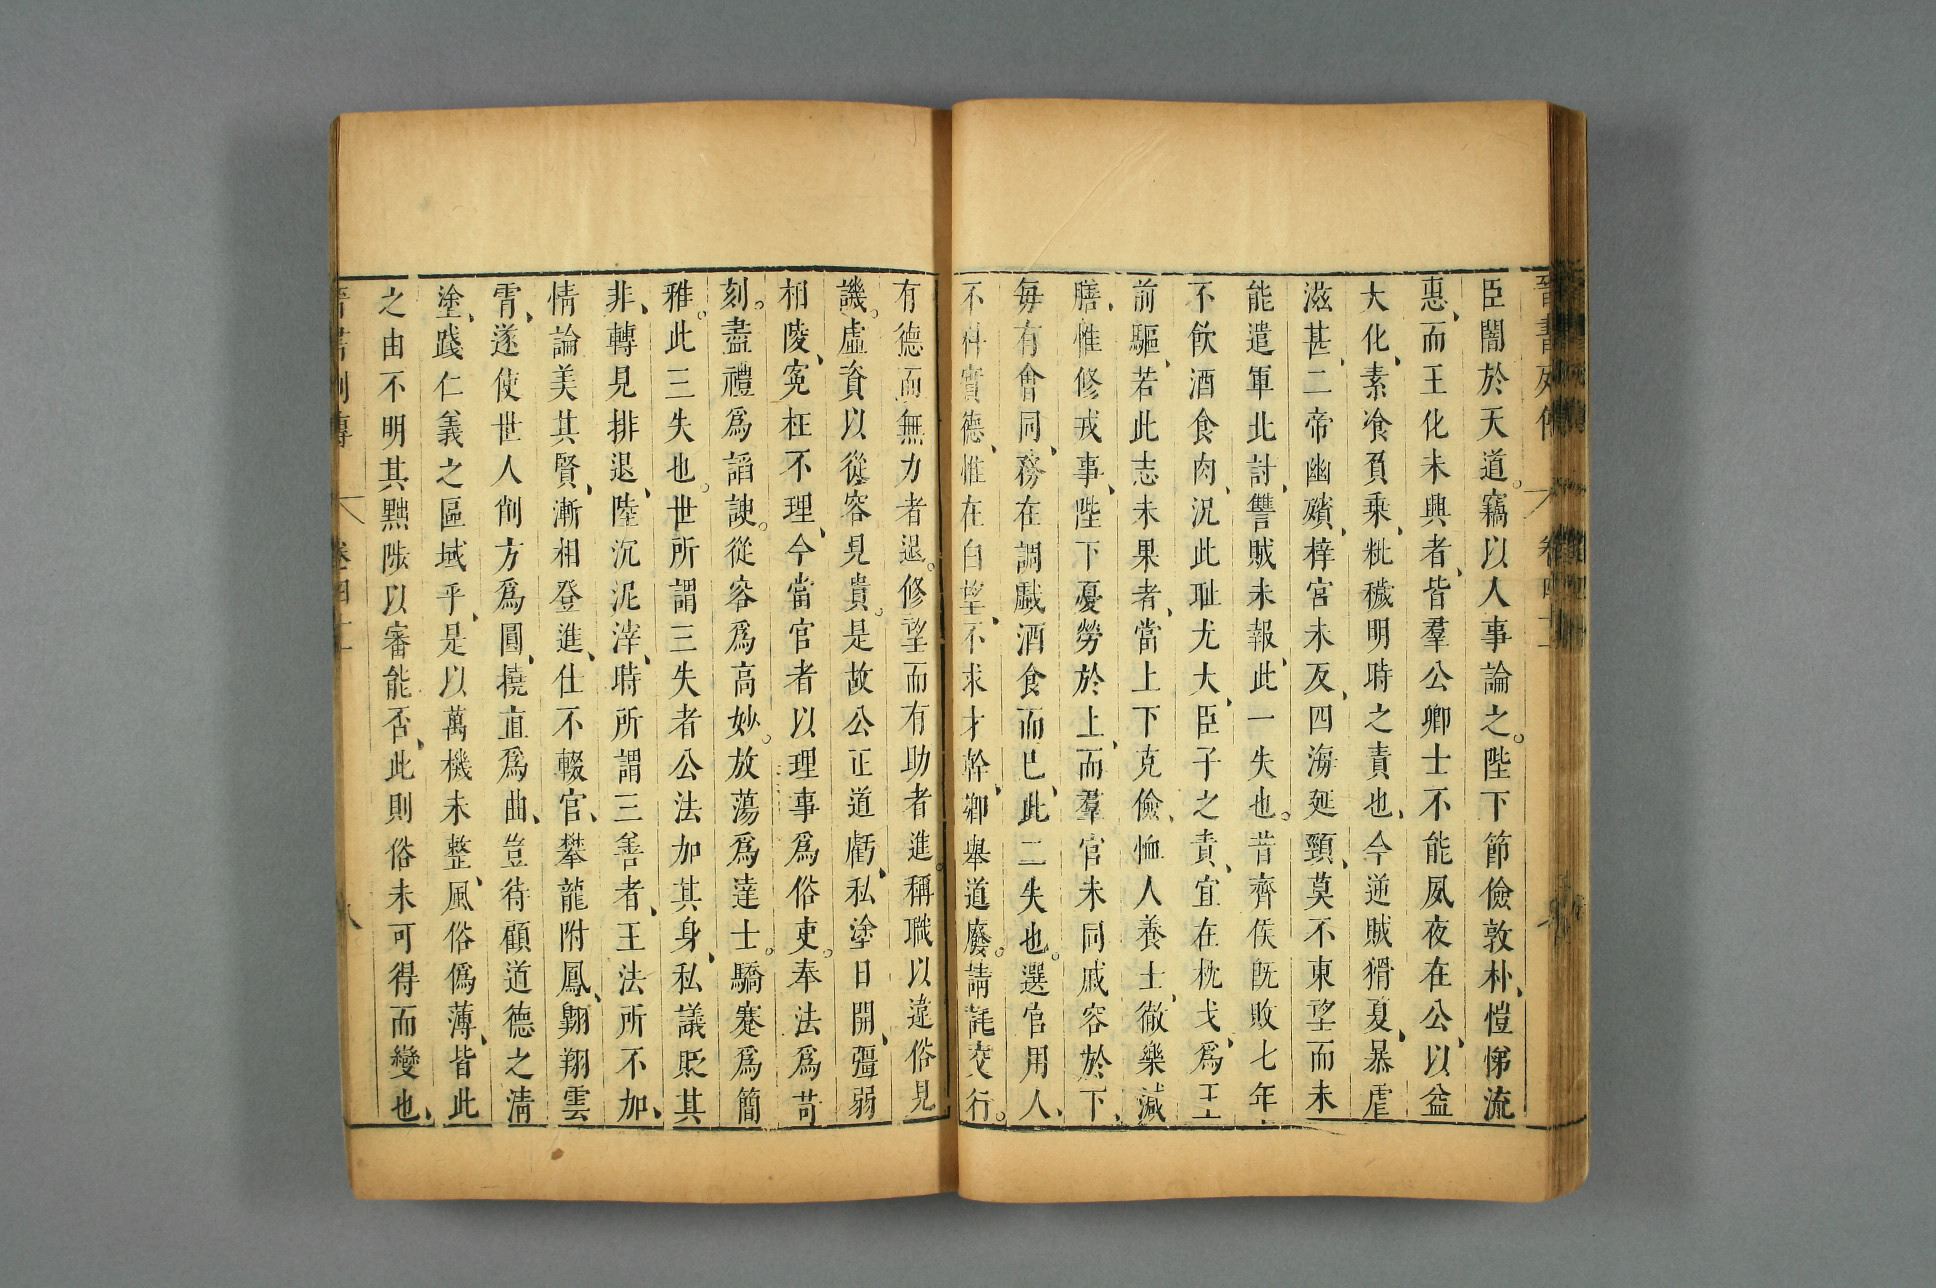 晉書列傳 卷四十一
臣闇於天道。竊以人事論之。陛下節儉敦朴、愷悌流
惠、而王化未興者、皆羣公卿士不能夙夜在公、以益
大化、素飡負乗、秕穢明時之責也、今逆賊猾夏、暴虐
滋甚、二帝幽殯、梓宮未反、四海延頸、莫不東望而未
能遣軍北討、讐賊未報、此一失也。昔齊侯既敗七年
不飲酒食肉、況此耻尤大、臣子之責、宜在枕戈、爲王
前驅、若此志未果者、當上下克儉、恤人養士、徹樂減
膳、惟修戎事、陛下憂勞於上、而羣官未同戚容於下、
每有會同、務在調戲酒食而已、此二失也。選官用人、
不料實德、惟在白望、不求才幹、鄉舉道廢。請託交行。
有德而無力者退。修望而有助者進。稱職以違俗見
譏。虛資以從容見貴。是故公正道虧、私塗日開、彊弱
相陵、寃枉不理、今當官者以理事爲俗吏。奉法爲苛
刻。盡禮爲諂諛。從容爲高妙。放蕩爲達士。驕蹇爲簡
雅。此三失也。世所謂三失者公法加其身、私議貶其
非、轉見排退、陸沉泥滓、時所謂三善者、王法所不加、
情論美其賢、漸相登進、仕不輟官、攀龍附鳳、翺翔雲
霄、遂使世人削方爲圓、撓直爲曲、豈待顧道德之清
塗、踐仁義之區域乎、是以萬機未整、風俗僞薄、皆此
之由不明其黜陟以審能否、此則俗未可得而變也、
晉書列傳 卷四十一 八